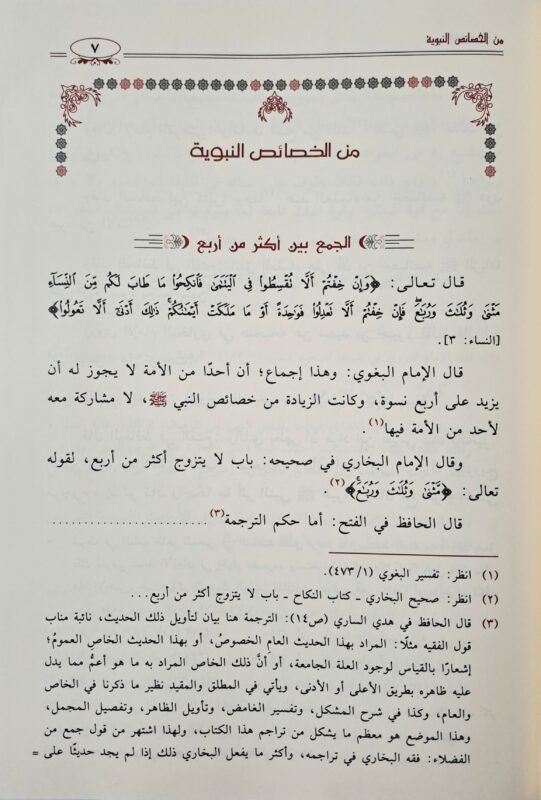 من الخصائص النبوية
٧
من الخصائص النبوية
الجمع بين أكثر من أربع
قال تعالى: ﴿وَإِنْ خِفْتُمْ أَلَّا تُقْسِطُوا فِي الْيَتَامَىٰ فَانكِحُوا مَا طَابَ لَكُم مِّنَ النِّسَآءِ
مَثْنَىٰ وَثُلَاثَ وَرُبَاعَ فَإِنْ خِفْتُمْ أَلَّا تَعْدِلُوا فَوَاحِدَةً أَوْ مَا مَلَكَتْ أَيْمَانُكُمْ ذَٰلِكَ أَدْنَىٰ أَلَّا تَعُولُوا﴾
[النساء: ٣].
قال الإمام البغوي: وهذا إجماع؛ أن أحدًا من الأمة لا يجوز له أن
يزيد على أربع نسوة، وكانت الزيادة من خصائص النبي ﷺ، لا مشاركة معه
لأحد من الأمة فيها(١).
وقال الإمام البخاري في صحيحه: باب لا يتزوج أكثر من أربع، لقوله
تعالى: ﴿مَّثْنَىٰ وَثُلَاثَ وَرُبَاعَ﴾(٢).
قال الحافظ في الفتح: أما حكم الترجمة(٣).........................
(١) انظر: تفسير البغوي (٤٧٣/١).
(٢) انظر: صحيح البخاري ـ كتاب النكاح ـ باب لا يتزوج أكثر من أربع...
(٣) قال الحافظ في هدي الساري (ص١٤): الترجمة هنا بيان لتأويل ذلك الحديث، نائبة مناب
قول الفقيه مثلًا: المراد بهذا الحديث العام الخصوصُ، أو بهذا الحديث الخاصِ العمومُ؛
إشعارًا بالقياس لوجود العلة الجامعة، أو أنَّ ذلك الخاص المراد به ما هو أعمُّ مما يدل
عليه ظاهره بطريق الأعلى أو الأدنى، ويأتي في المطلق والمقيد نظير ما ذكرنا في الخاص
والعام، وكذا في شرح المشكل، وتفسير الغامض، وتأويل الظاهر، وتفصيل المجمل،
وهذا الموضع هو معظم ما يشكل من تراجم هذا الكتاب، ولهذا اشتهر من قول جمع من
الفضلاء: فقه البخاري في تراجمه، وأكثر ما يفعل البخاري ذلك إذا لم يجد حديثًا على =